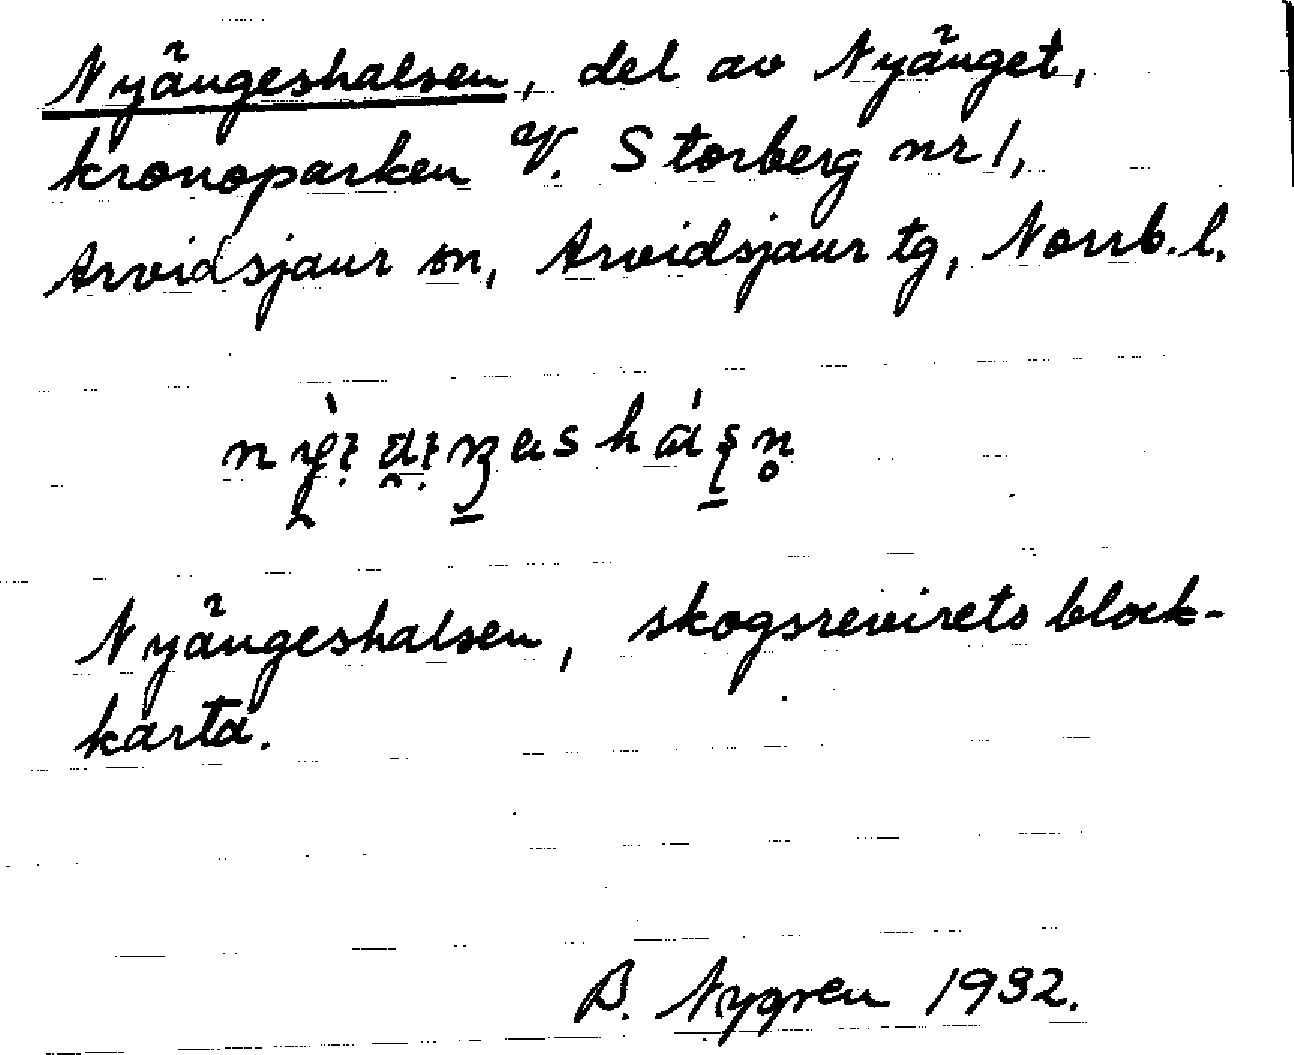 Nyängeshalsen, del av Nyänget,
kronoparken V. Storberg nr 1,
Arvidsjaur sn, Arvidsjaur tg, Norrb. l.
Nyängeshalsen, skogsrevirets block-
karta.
B. Nygren 1932.